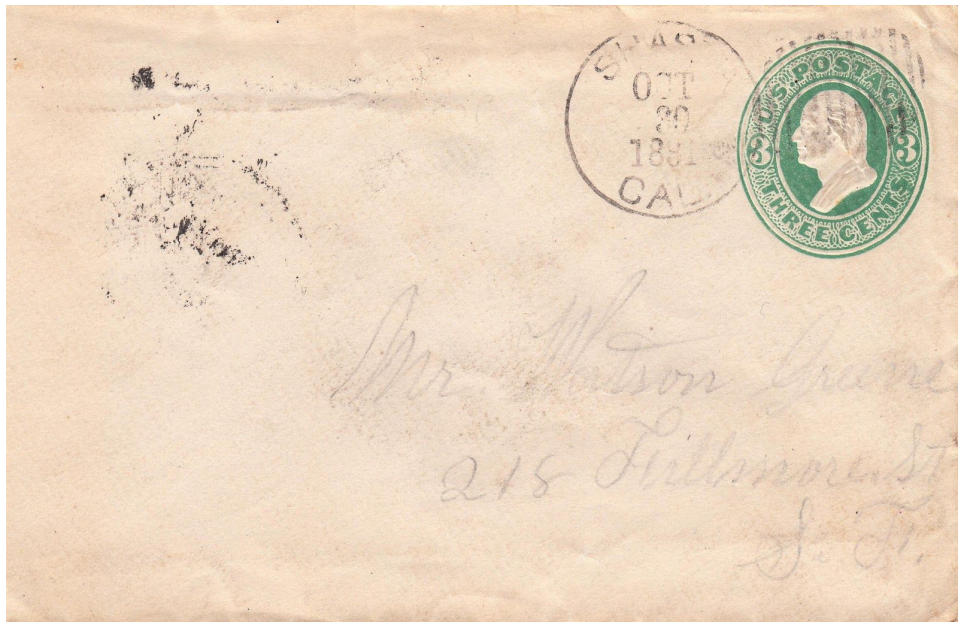 OCT
1881
CAL
U.S. POSTAGE
3 3
THREE CENTS
Mr. Watson Greene
218 Fillmore St
S. F.